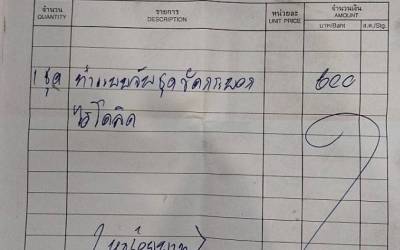 จำนวน รายการ หน่วยละ จำนวนเงิน
QUANTITY DESCRIPTION UNIT PRICE AMOUNT
บาท/Baht ส.ต./Stg.
1 ชุด ทำแบบจับชุดขัดกระบอก ๖๐๐
ไฮโดลิค
(หกร้อยบาท)